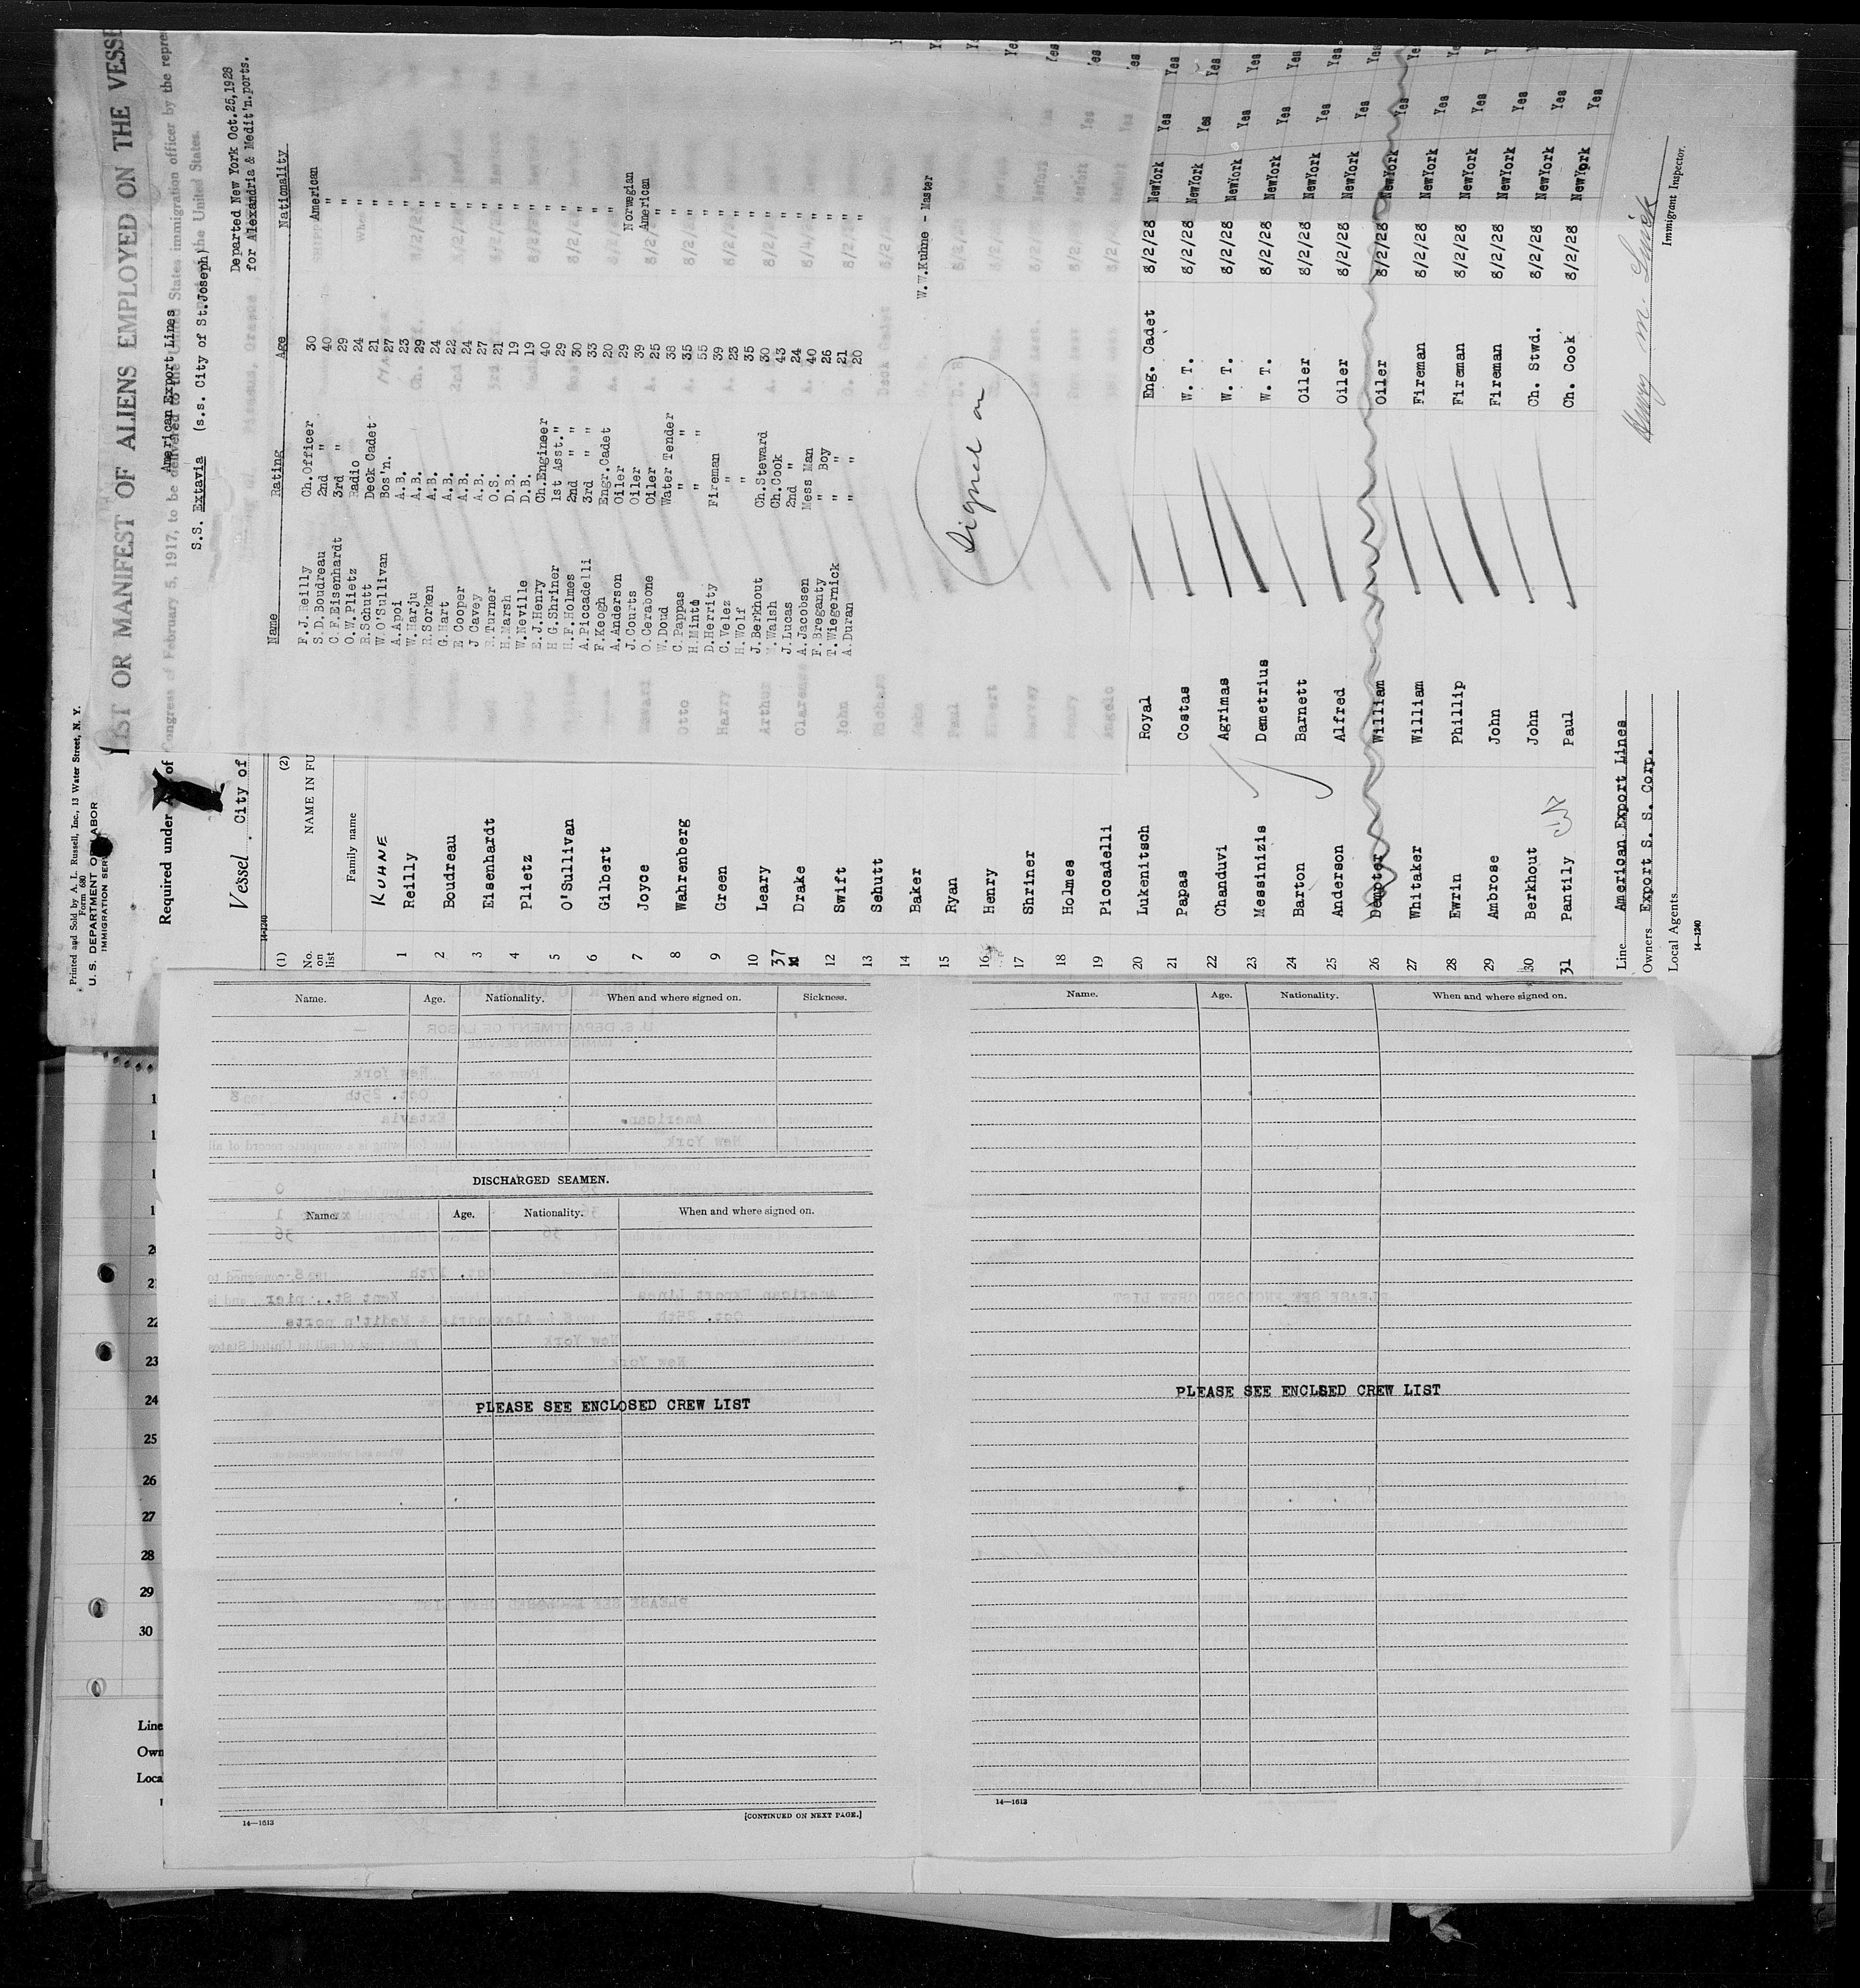 Printed and Sold by A. L. Russell, Inc., 13 Water Street, N. Y.
Form 680
U. S. DEPARTMENT OF LABOR
IMMIGRATION SERV
LIST OR MANIFEST OF ALIENS EMPLOYED ON THE VESSE
Required under Act of Congress of February 5, 1917, to be delivered to the United States immigration officer by the repre
Vessel City of
American Export Lines
S.S. Extavia (s.s. City of St.Joseph)
Departed New York Oct.25,1928
for Alexandria & Medit'n.ports.
Name Rating Age Nationality
F.J.Reilly Ch.Officer 30 American
S.D.Boudreau 2nd " 40 "
C.F.Eisenhardt 3rd " 29 "
O.W.Plietz Radio 24 "
R.Schutt Deck Cadet 21 "
W.O'Sullivan Bos'n. 27 "
A.Apoi A.B. 23 "
W.Harju A.B. 29 "
R.Sorken A.B. 24 "
G.Hart A.B. 22 "
E Cooper A.B. 24 "
J Cavey A.B. 27 "
R.Turner O.S. 21 "
H.Marsh D.B. 19 "
W.Neville D.B. 19 "
E.J.Henry Ch.Engineer 40 "
H G.Shriner 1st Asst." 29 "
H.F.Holmes 2nd " " 30 "
A.Piccadelli 3rd " " 33 "
F.Keogh Engr.Cadet 20 "
A.Anderson Oiler 29 Norwegian
J.Courts Oiler 39 American
O.Cerabone Oiler 25 "
W.Doud Water Tender 38 "
C.Pappas " " 35 "
H.Minto " " 55 "
D.Herrity Fireman 39 "
C.Velez " 23 "
H.Wolf " 35 "
J.Berkhout Ch.Steward 30 "
M.Walsh Ch.Cook 43 "
J.Lucas 2nd " 24 "
A.Jacobsen Mess Man 40 "
F.Breganty " Boy 26 "
T.Wiegernick " " 21 "
A.Duran " " 20 "
W.W.Kuhne - Master
Signed on
(1) (2)
No. on list NAME IN FU
Family name
KUHNE
1 Reilly
2 Boudreau
3 Eisenhardt
4 Plietz
5 O'Sullivan
6 Gilbert
7 Joyce
8 Wahrenberg Otto
9 Green Harry
10 Leary Arthur
37 Drake Clarence
12 Swift John
13 Schutt Richard
14 Baker
15 Ryan Paul
16 Henry
17 Shriner Harvey
18 Holmes Henry
19 Piccadelli Angelo
20 Lukenitsch Royal Eng. Cadet 8/2/28 NewYork Yes Yes
21 Papas Costas W. T. 8/2/28 NewYork Yes Yes
22 Chanduvi Agrimas W. T. 8/2/28 NewYork Yes Yes
23 Messinizis Demetrius W. T. 8/2/28 NewYork Yes Yes
24 Barton Barnett Oiler 8/2/28 NewYork Yes Yes
25 Anderson Alfred Oiler 8/2/28 NewYork Yes Yes
26 Dempter William Oiler 8/2/28 NewYork Yes Yes
27 Whitaker William Fireman 8/2/28 NewYork Yes Yes
28 Ewrin Phillip Fireman 8/2/28 NewYork Yes
29 Ambrose John Fireman 8/2/28 NewYork Yes
30 Berkhout John Ch. Stwd. 8/2/28 NewYork Yes
31 Pantily Paul Ch. Cook 8/2/28 NewYork Yes
Line American Export Lines
Owners Export S. S. Corp.
Local Agents
14-1240
Immigrant Inspector.
Name. Age. Nationality. When and where signed on. Sickness.
DISCHARGED SEAMEN.
Name. Age. Nationality. When and where signed on.
PLEASE SEE ENCLOSED CREW LIST
14—1613
[CONTINUED ON NEXT PAGE.]
Name. Age. Nationality. When and where signed on.
PLEASE SEE ENCLSED CREW LIST
14—1613
22
23
24
25
26
27
28
29
30
Line
Own
Loca